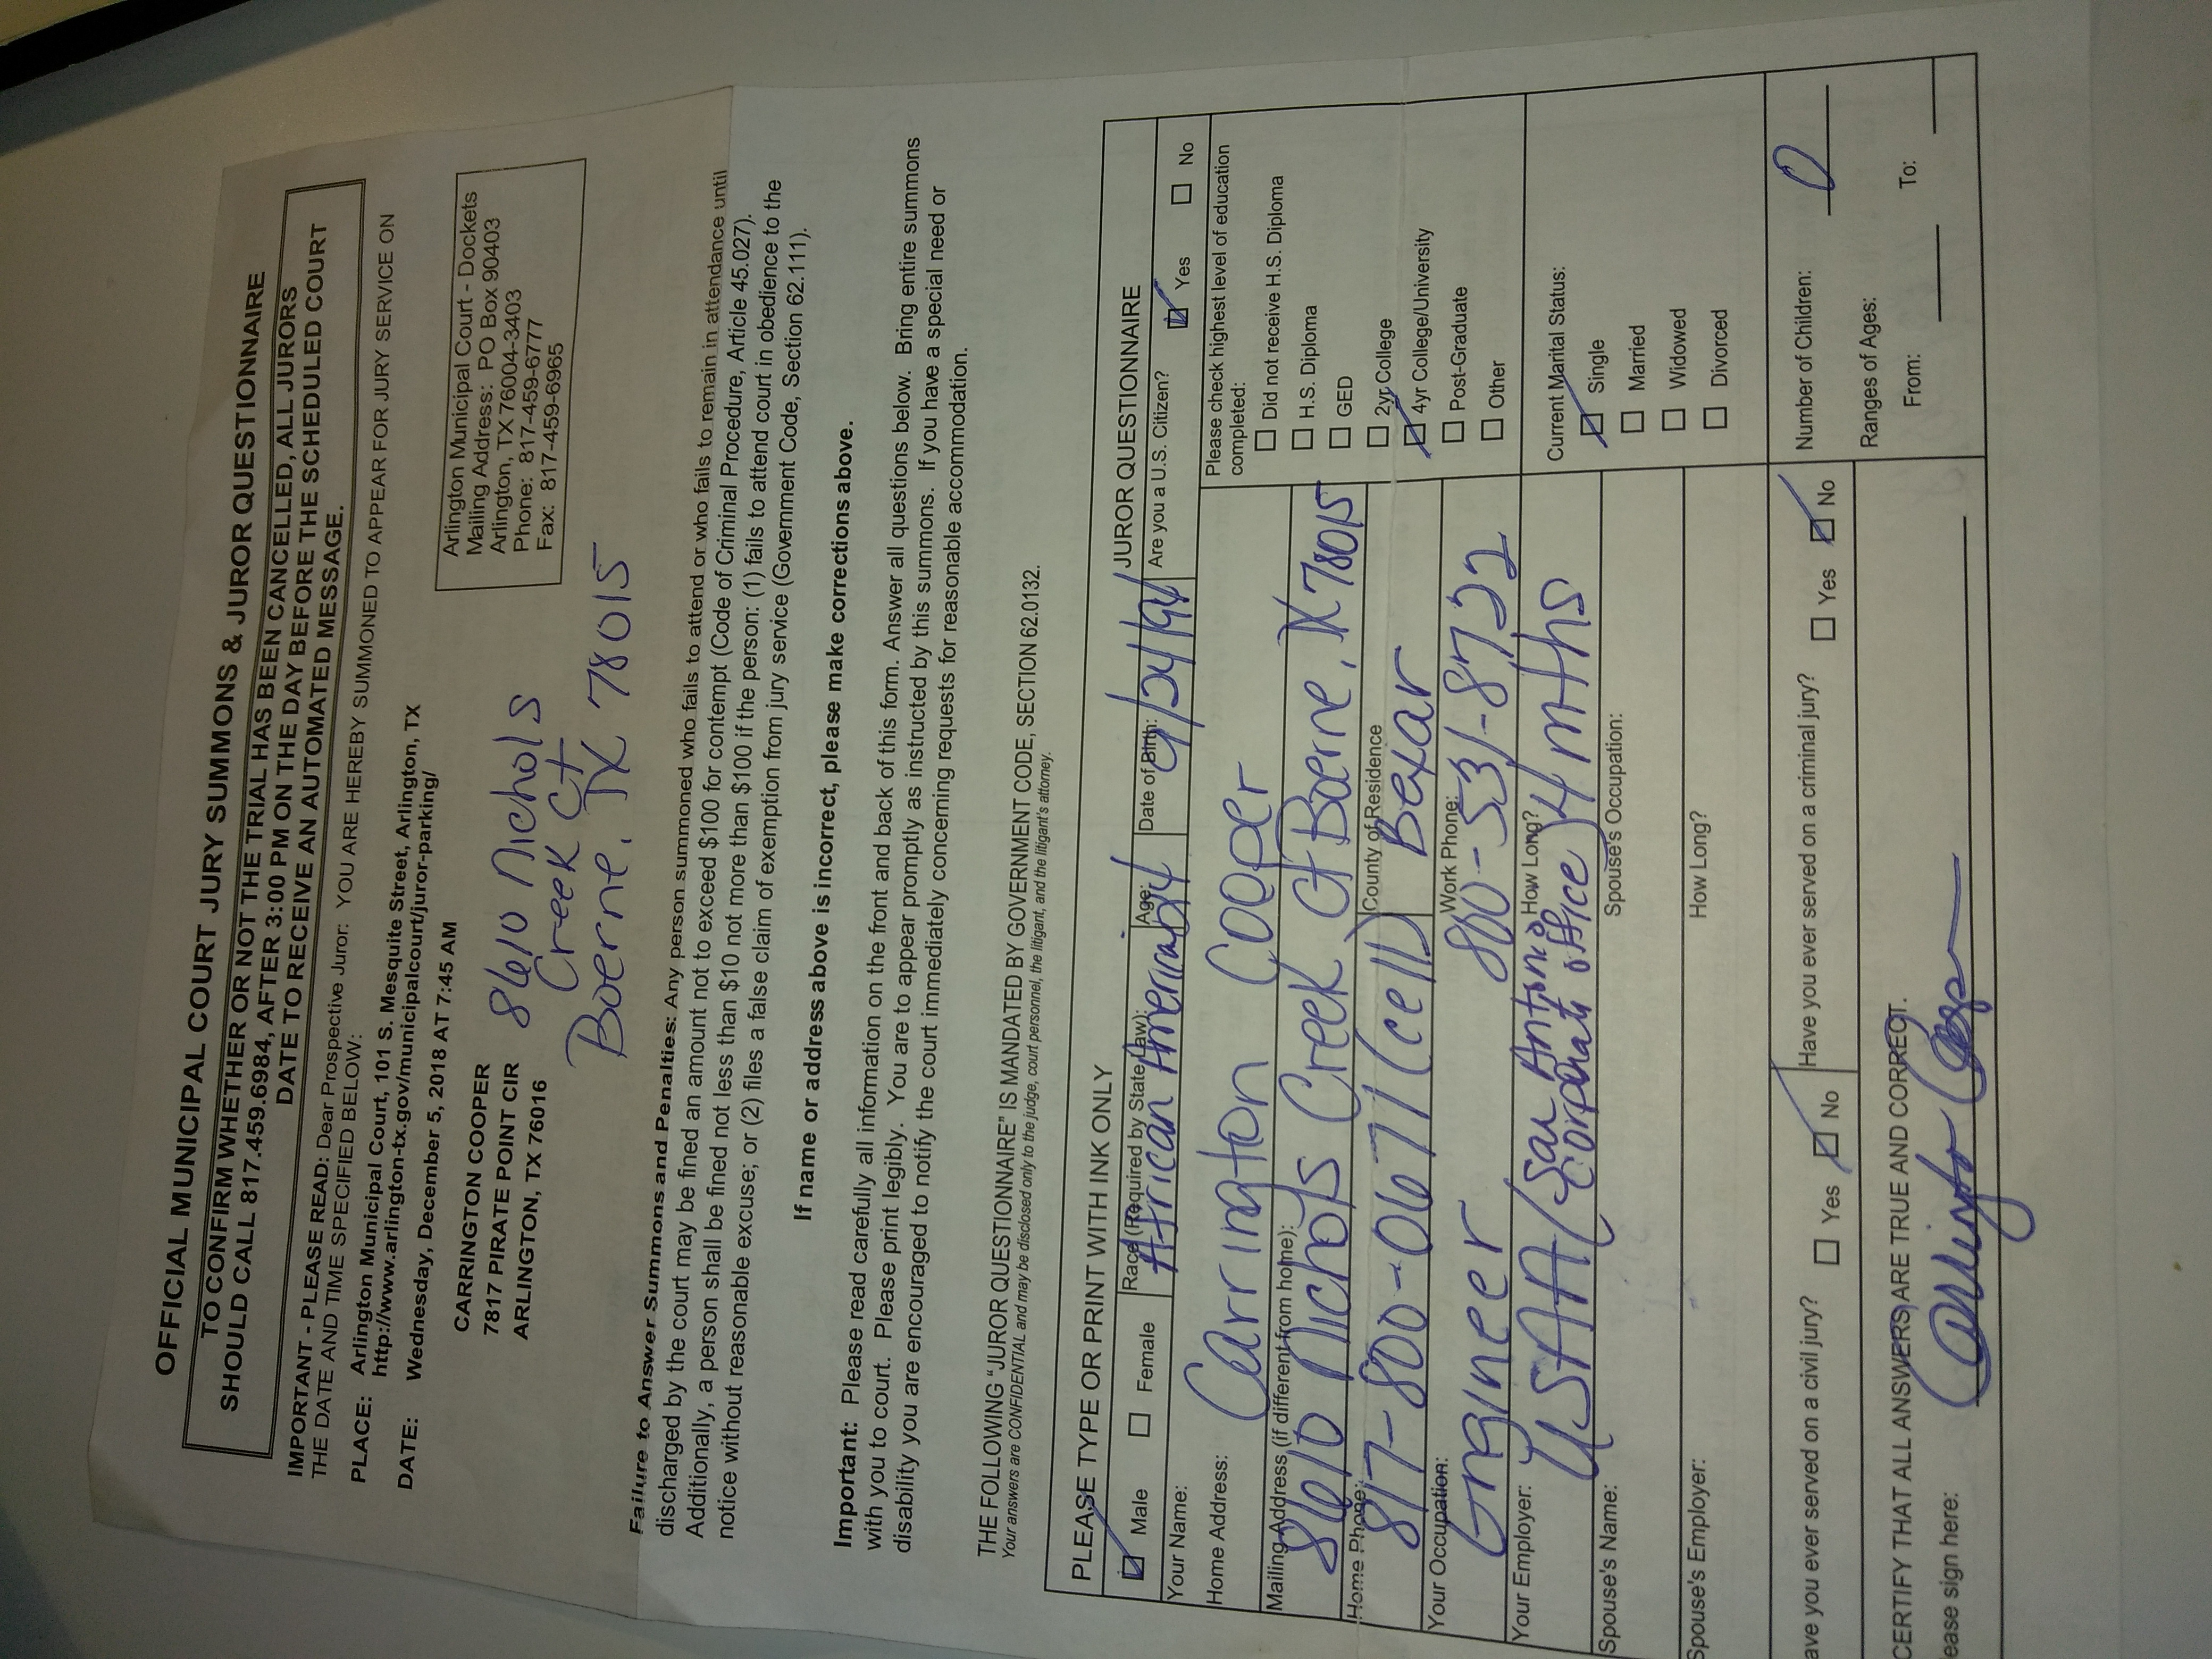 OFFICIAL MUNICIPAL COURT JURY SUMMONS & JUROR QUESTIONNAIRE
TO CONFIRM WHETHER OR NOT THE TRIAL HAS BEEN CANCELLED, ALL JURORS
SHOULD CALL 817.459.6984, AFTER 3:00 PM ON THE DAY BEFORE THE SCHEDULED COURT
DATE TO RECEIVE AN AUTOMATED MESSAGE.
IMPORTANT - PLEASE READ: Dear Prospective Juror: YOU ARE HEREBY SUMMONED TO APPEAR FOR JURY SERVICE ON
THE DATE AND TIME SPECIFIED BELOW:
PLACE: Arlington Municipal Court, 101 S. Mesquite Street, Arlington, TX
http://www.arlington-tx.gov/municipalcourt/juror-parking/
DATE: Wednesday, December 5, 2018 AT 7:45 AM
Arlington Municipal Court - Dockets
Mailing Address: PO Box 90403
Arlington, TX 76004-3403
Phone: 817-459-6777
Fax: 817-459-6965
CARRINGTON COOPER
7817 PIRATE POINT CIR
ARLINGTON, TX 76016
8610 Nichols
Creek Ct
Boerne, TX 78015
Failure to Answer Summons and Penalties: Any person summoned who fails to attend or who fails to remain in attendance until
discharged by the court may be fined an amount not to exceed $100 for contempt (Code of Criminal Procedure, Article 45.027).
Additionally, a person shall be fined not less than $10 not more than $100 if the person: (1) fails to attend court in obedience to the
notice without reasonable excuse; or (2) files a false claim of exemption from jury service (Government Code, Section 62.111).
If name or address above is incorrect, please make corrections above.
Important: Please read carefully all information on the front and back of this form. Answer all questions below. Bring entire summons
with you to court. Please print legibly. You are to appear promptly as instructed by this summons. If you have a special need or
disability you are encouraged to notify the court immediately concerning requests for reasonable accommodation.
THE FOLLOWING "JUROR QUESTIONNAIRE" IS MANDATED BY GOVERNMENT CODE, SECTION 62.0132.
Your answers are CONFIDENTIAL and may be disclosed only to the judge, court personnel, the litigant, and the litigant's attorney.
PLEASE TYPE OR PRINT WITH INK ONLY JUROR QUESTIONNAIRE
Male Female Race (Required by State Law): African American Age: 24 Date of Birth: 9/24/94 Are you a U.S. Citizen? Yes No
Your Name: Carrington Cooper
Home Address:
Mailing Address (if different from home):
8610 Nichols Creek Ct Boerne, TX 78015
Home Phone: 817-800-0671 (cell) County of Residence Bexar
Your Occupation: Engineer Work Phone: 800-531-8722
Your Employer: USAA (San Antonio Corporate office) How Long? 4 mths
Spouse's Name: Spouse's Occupation:
Spouse's Employer: How Long?
Please check highest level of education
completed:
Did not receive H.S. Diploma
H.S. Diploma
GED
2yr College
4yr College/University
Post-Graduate
Other
Current Marital Status:
Single
Married
Widowed
Divorced
ave you ever served on a civil jury? Yes No Have you ever served on a criminal jury? Yes No
Number of Children: 0
Ranges of Ages:
From: To:
CERTIFY THAT ALL ANSWERS ARE TRUE AND CORRECT.
ease sign here: